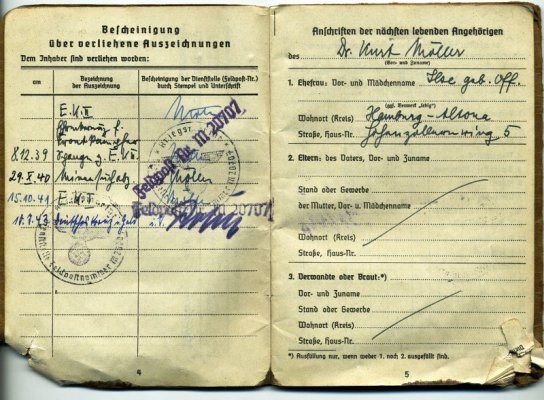 Bescheinigung
über verliehene Auszeichnungen
Dem Inhaber sind verliehen worden:
am
Bezeichnung der Auszeichnung
Bescheinigung der Dienststelle (Feldpost-Nr.) durch Stempel und Unterschrift
E.K.II
8.12.39
29.8.40
15.10.41 E.K.I
18.7.43
Feldpost Nr. M 20707
Feldpost Nr. M 20707
4
Anschriften der nächsten lebenden Angehörigen
des Dr. Kurt Möller
(Vor- und Zuname)
1. Ehefrau: Vor- und Mädchenname Ilse geb. Off.
(ggf. Vermerk „ledig“)
Wohnort (Kreis) Hamburg-Altona
Straße, Haus-Nr. Hohenzollernring 5
2. Eltern: des Vaters, Vor- und Zuname
Stand oder Gewerbe
der Mutter, Vor- u. Mädchenname
Wohnort (Kreis)
Straße, Haus-Nr.
3. Verwandte oder Braut:*)
Vor- und Zuname
Stand oder Gewerbe
Wohnort (Kreis)
Straße, Haus-Nr.
*) Ausfüllung nur, wenn weder 1. noch 2. ausgefüllt sind.
5